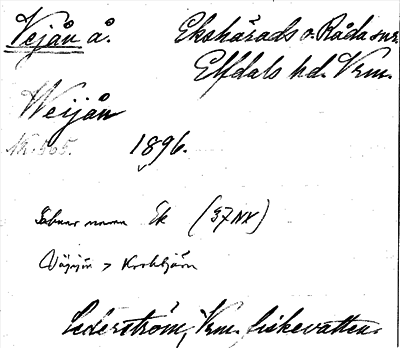 Vejån å. Ekshärads o. Råda snr.
Elfdals hd. Vrm.
Weijån
1896.
Saknar namn Ek (37NV)
Vägsjön > Krokbjörn
Cederström, Vrm. fiskevatten.